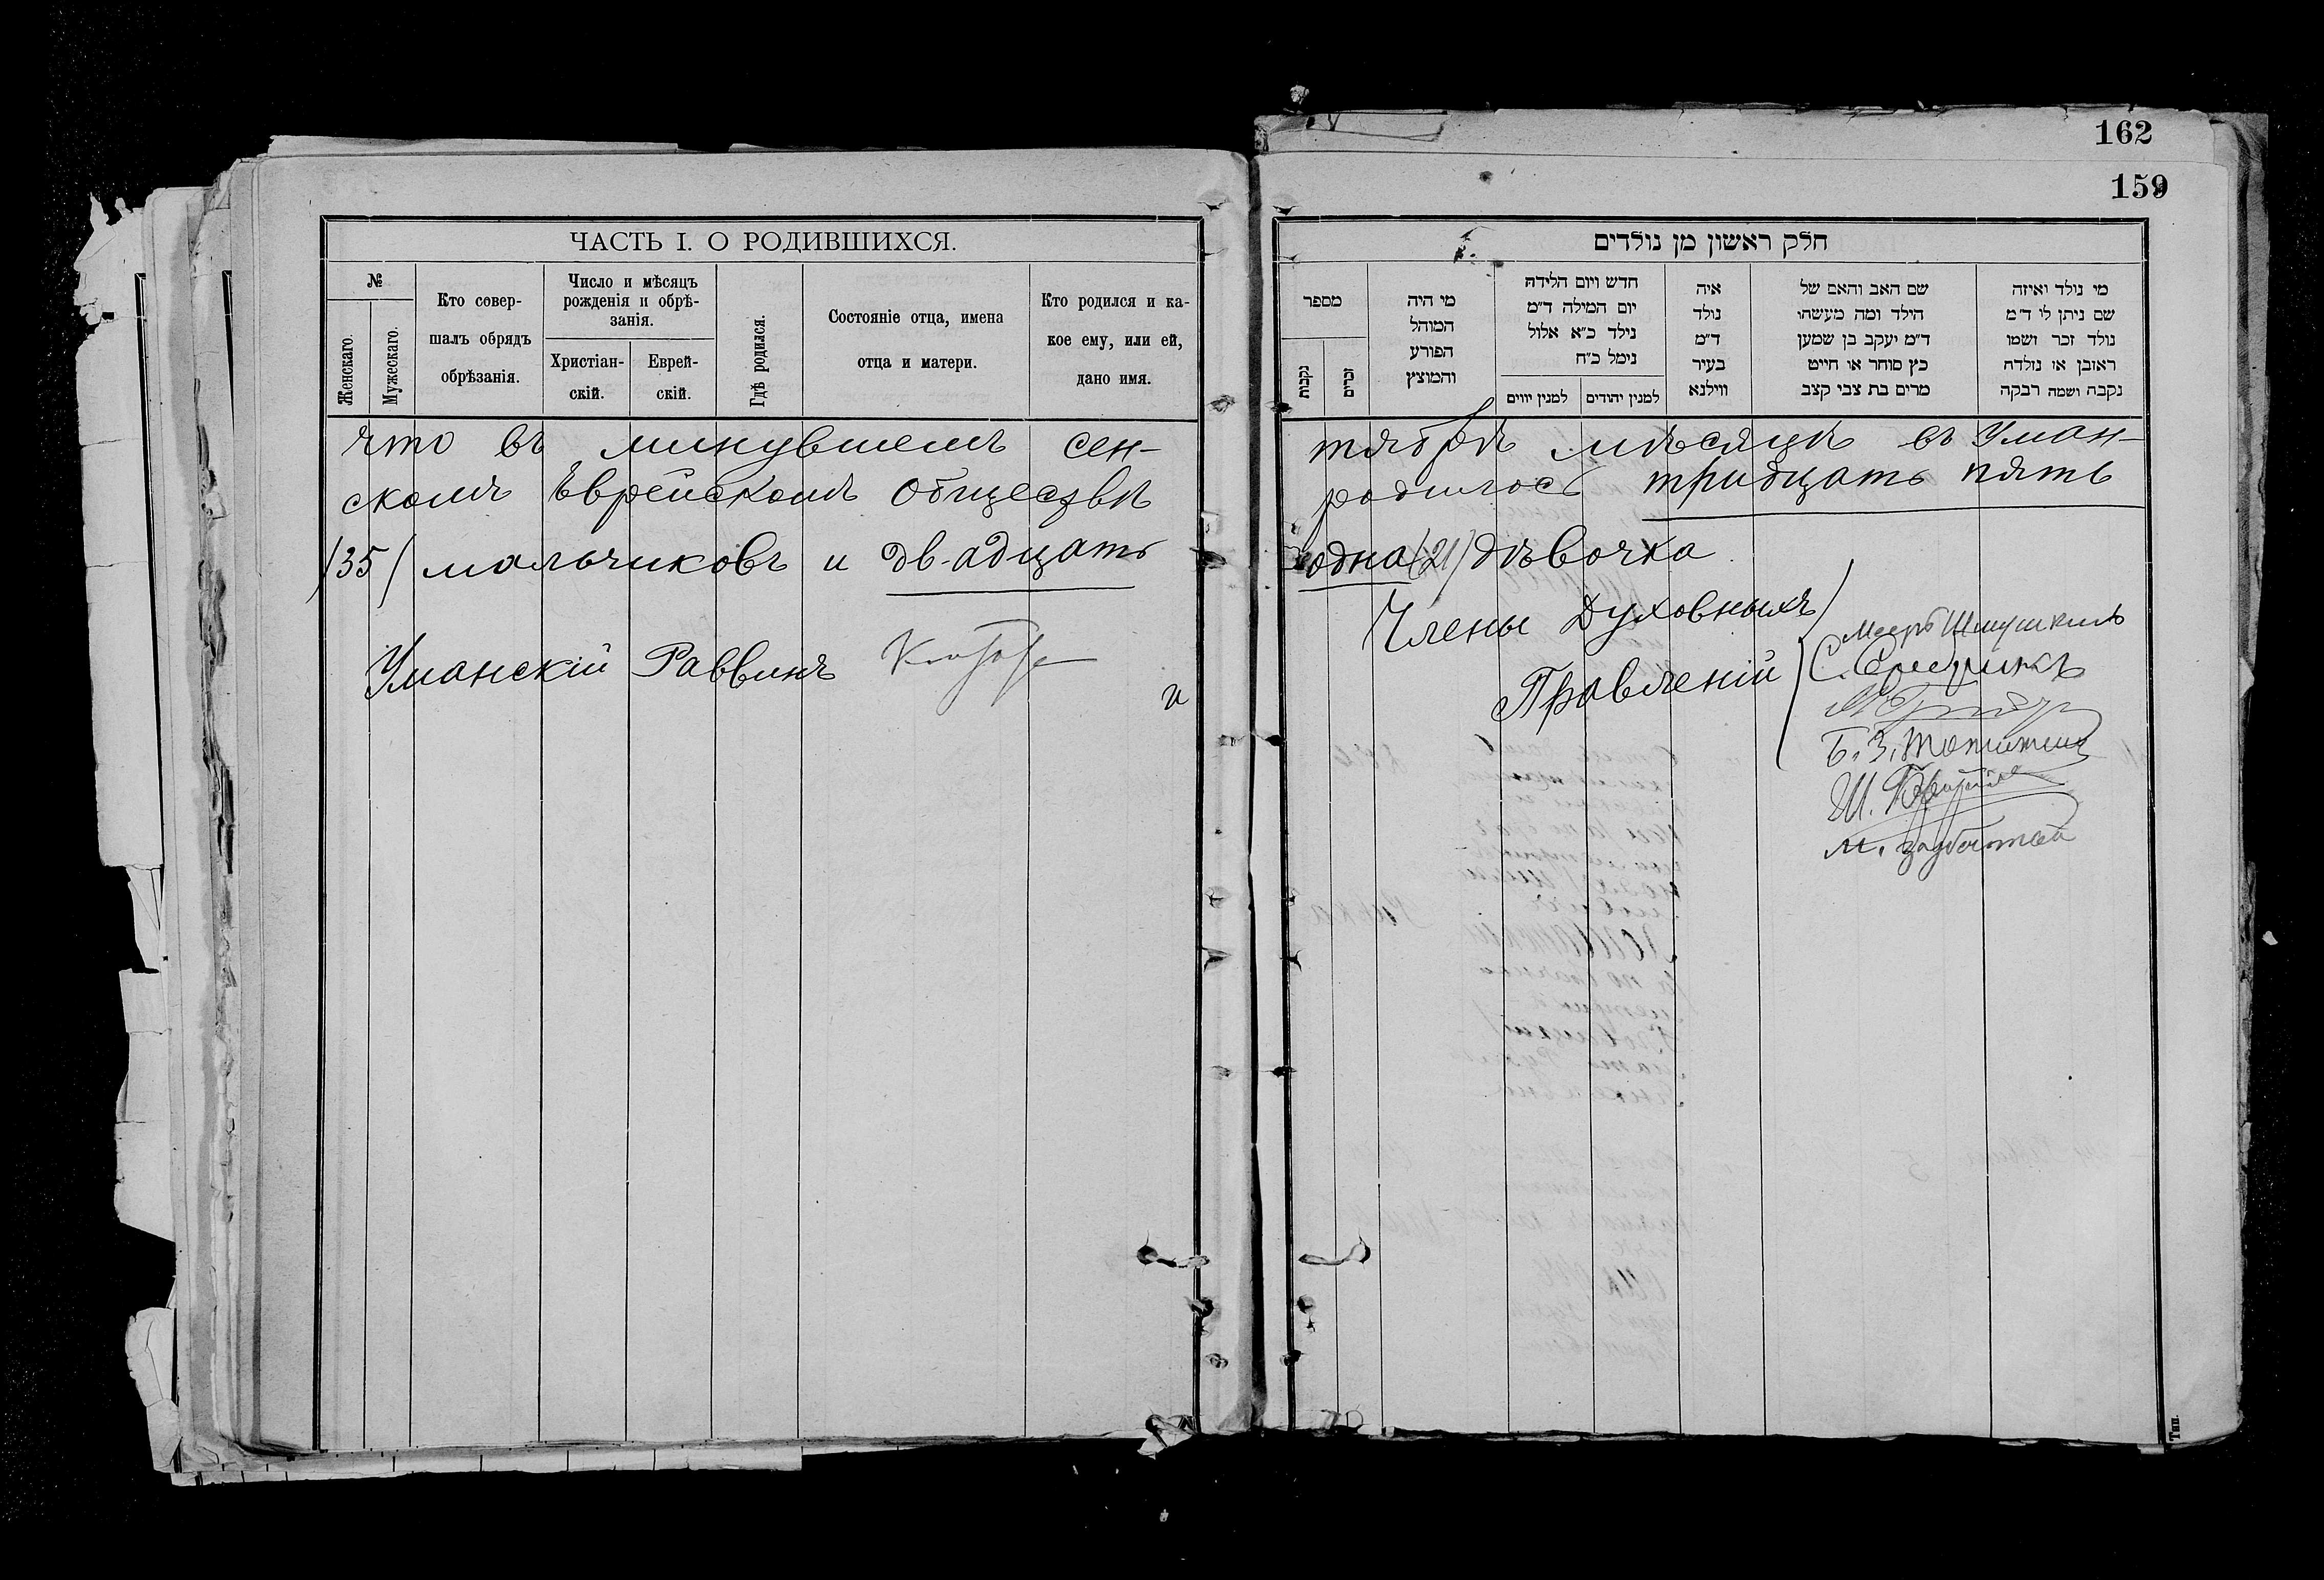 162
159
ЧАСТЬ I. О РОДИВШИХСЯ.
№
Женскаго.
Мужескаго.
Кто совер-
шалъ обрядъ
обрѣзанія.
Число и мѣсяцъ
рожденія и обрѣ-
занія.
Христіан-
скій.
Еврей-
скій.
Гдѣ родился.
Состояніе отца, имена
отца и матери.
Кто родился и ка-
кое ему, или ей,
дано имя.
что въ минувшемъ сен-
скомъ Еврейскомъ Обществѣ
/35/ мальчиковъ и двадцать
Уманскій Раввинъ
и
חלק ראשון מן נולדים
מספר
נקבות
זכרים
מי היה
המוהל
הפורע
והמוצץ
חדש ויום הלידה
יום המילה ד״מ
נילד כ״א אלול
נימל כ״ח
למנין יווים
למנין יהודים
איה
נולד
ד״מ
בעיר
ווילנא
שם האב והאם של
הילד ומה מעשהו
ד״מ יעקב בן שמען
כץ סוחר או חייט
מרים בת צבי קצב
מי נולד ואיזה
שם ניתן לו ד״מ
נולד זכר ושמו
ראובן או נולדה
נקבה ושמה רבקה
тябрѣ мѣсяцѣ въ Уман-
родилось тридцать пять
одна (21) дѣвочка
Члены Духовныхъ
Правленій
Б. З.
Ш.
М.
Тип.